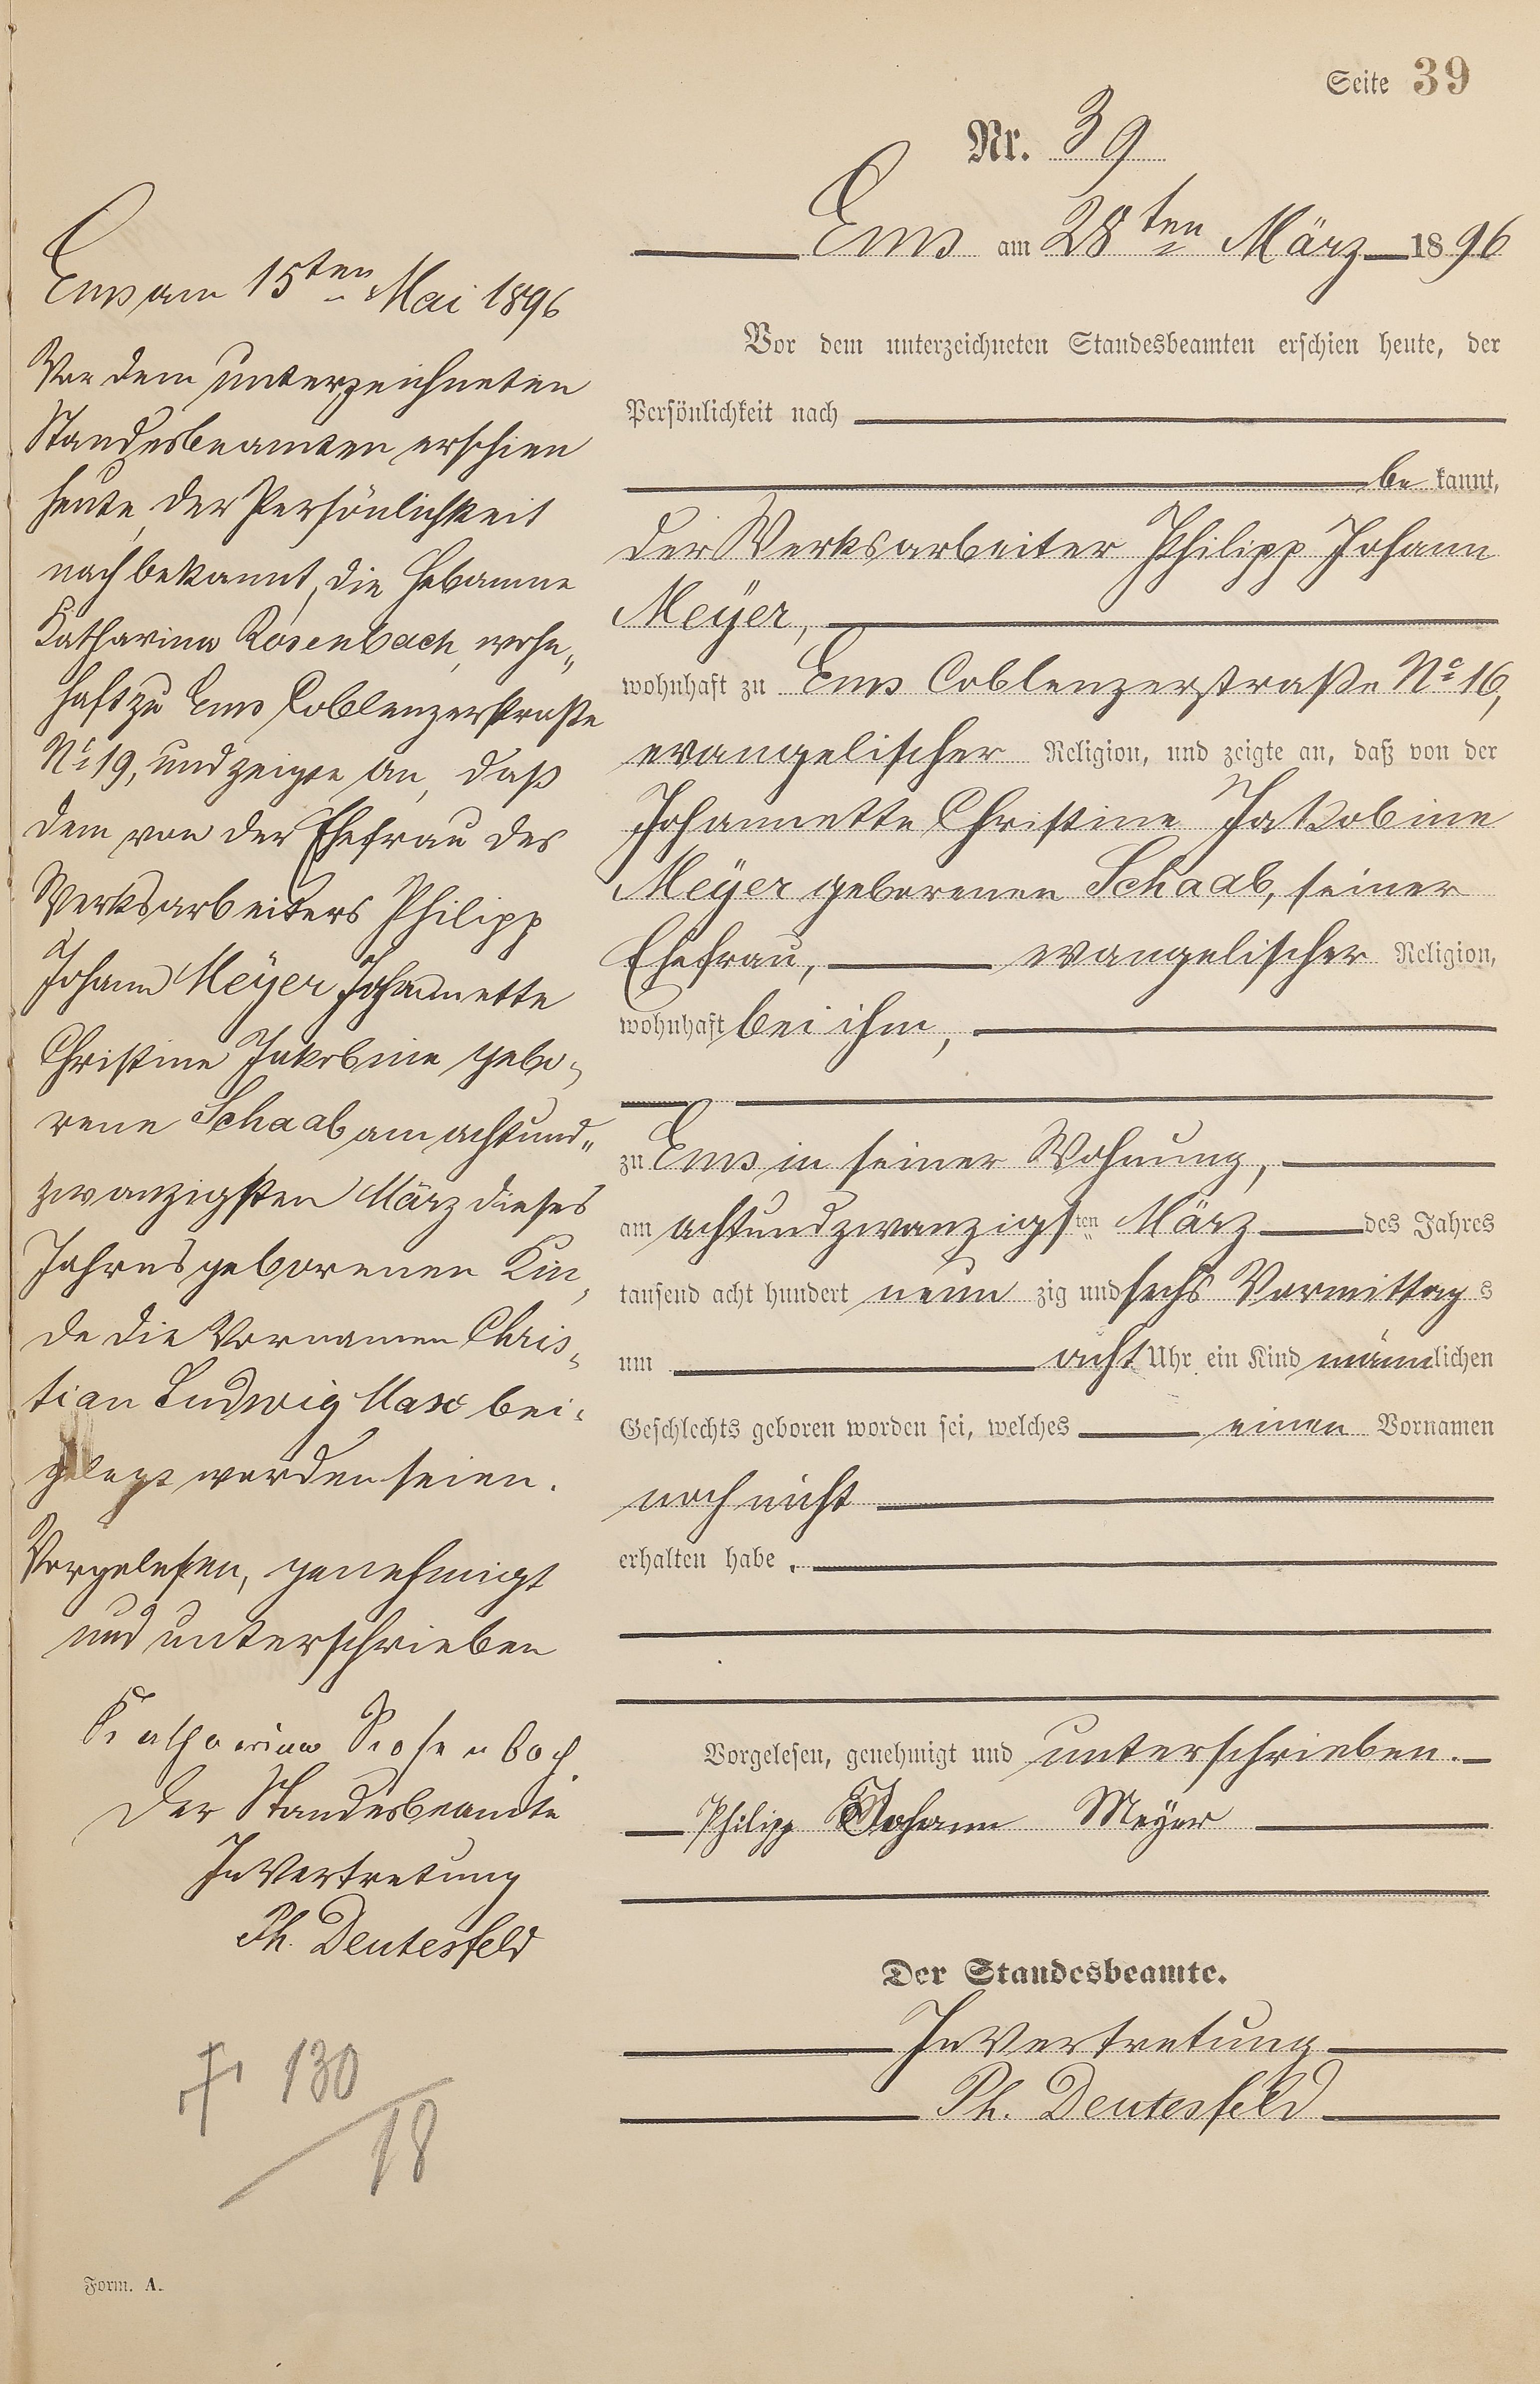 Seite 39
Nr. 39
Ems am 28ten März 1896
Vor dem unterzeichneten Standesbeamten erschien heute, der
Persönlichkeit nach
be kannt,
der Werksarbeiter Philipp Johann
Meÿer,
wohnhaft zu Ems Coblenzerstraße No 16,
evangelischer Religion, und zeigte an, daß von der
Johannette Christine Jakobine
Meÿer geborenen Schaab, seiner
Ehefrau, evangelischer Religion,
wohnhaft bei ihm,
zu Ems in seiner Wohnung,
am achtundzwanzigsten März des Jahres
tausend acht hundert neun zig und sechs Vormittag s
um acht Uhr ein Kind männlichen
Geschlechts geboren worden sei, welches einen Vornamen
noch nicht
erhalten habe.
Vorgelesen, genehmigt und unterschrieben.
Philipp Johann Meÿer
Der Standesbeamte.
In Vertretung
Ph. Deutesfeld
Ems am 15ten Mai 1896
Vor dem unterzeichneten
Standesbeamten erschien
heute, der Persönlichkeit
nach bekannt, die Hebamme
Katharina Rosenbach, wohn„
haft zu Ems Coblenzerstraße
No 19, und zeigte an, daß
dem von der Ehefrau des
Werksarbeiters Philipp
Johann Meÿer Johannette
Christine Jakobine gebo„
rene Schaab am achtund„
zwanzigsten März dieses
Jahres geborenen Kin„
de die Vornamen Chris„
tian Ludwig Max bei„
gelegt worden seien.
Vorgelesen, genehmigt
und unterschrieben
Katharina Rosenbach
Der Standesbeamte
In Vertretung
Ph. Deutesfeld
† 130
/18
Form. A.